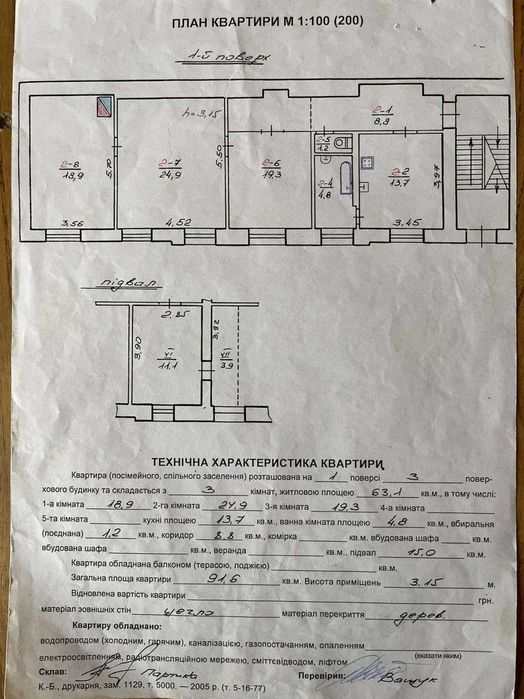 ПЛАН КВАРТИРИ М 1:100 (200)
1-й поверх
2-8
18,9
5,70
3.56
h=3,15
2-7
24,9
5,50
4,52
2-6
19,3
2-5
1.2
2-4
4,8
2-1
8,8
2-2
13,7
3,97
3,45
підвал
2.85
3,90
VI
11,1
3,92
VII
3.9
ТЕХНІЧНА ХАРАКТЕРИСТИКА КВАРТИРИ
Квартира (посімейного, спільного заселення) розташована на 1 поверсі 3 повер-
хового будинку та складається з 3 кімнат, житловою площею 63,1 кв.м., в тому числі:
1-а кімната 18,9 2-га кімната 24,9 3-я кімната 19.3 4-а кімната
5-та кімната кухні площею 13,7 кв.м., ванна кімната площею 4,8 кв.м., вбиральня
(поєднана) 1,2 кв.м., коридор 8.8 кв.м., комірка кв.м. вбудована шафа кв.м.,
вбудована шафа кв.м., веранда кв.м., підвал 15,0 кв.м.
Квартира обладнана балконом (терасою, лоджією) кв.м.
Загальна площа квартири 91,6 кв.м. Висота приміщень 3.15 м.
Відновлена вартість квартири грн.
матеріал зовнішніх стін цегла матеріал перекриття дерев.
Квартиру обладнано:
водопроводом (холодним, гарячим), каналізацією, газопостачанням, опаленням
(вказати яким)
електроосвітленням, радіотрансляційною мережею, сміттєвідводом, ліфтом
Склав: Перевірив: Ващук
К.-Б., друкарня, зам. 1129, т. 5000. — 2005 р. (т. 5-16-77)